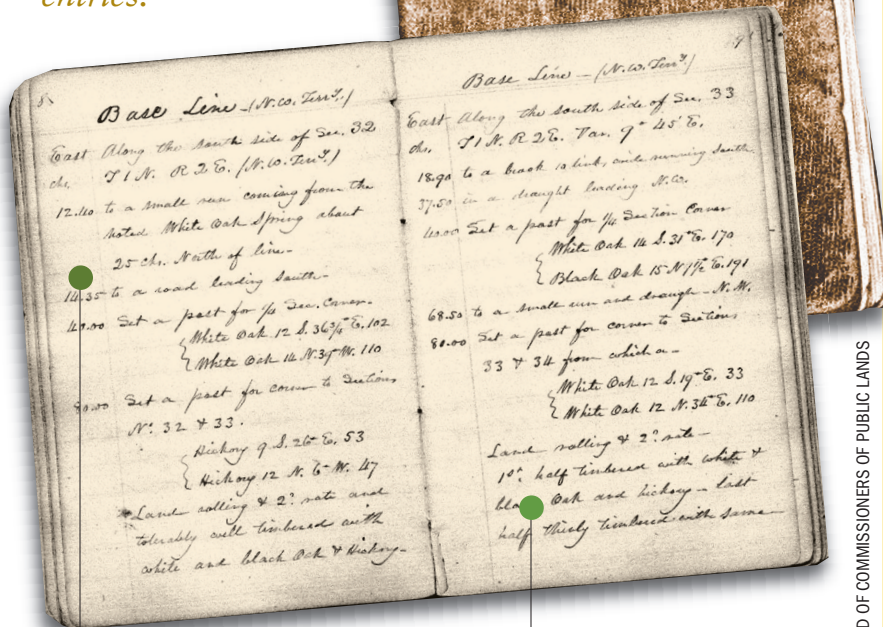 entries.
8
Base Line - (N.W. Terry.)
East Along the south side of Sec. 32
chs. T 1 N. R 2 E. (N.W. Terry.)
12.40 to a small run coming from the
noted White Oak Spring about
25 chs. North of line -
14.35 to a road leading South -
40.00 Set a post for 1/4 Sec. Corner -
White Oak 12 S. 36 3/4 E. 102
White Oak 14 N. 39 W. 110
80.00 Set a post for corner to Sections
No. 32 & 33.
Hickory 9 S. 26 E. 53
Hickory 12 N. 6 W. 47
Land rolling & 2d rate and
tolerably well timbered with
white and black Oak & Hickory -
9
Base Line - (N.W. Terry.)
East Along the south side of Sec. 33
chs. T 1 N. R 2 E. Var. 9° 45' E.
18.90 to a brook 10 links wide running South
37.50 in a draught leading N.W.
40.00 Set a post for 1/4 Section Corner
White Oak 14 S. 31° E. 170
Black Oak 15 N 71 1/2 E. 191
68.50 to a small run and draugh - N.W.
80.00 Set a post for corner to Sections
33 & 34 from which a -
White Oak 12 S. 19° E. 33
White Oak 12 N. 34° E. 110
Land rolling & 2d rate -
1st half timbered with white &
black Oak and hickory - last
half thinly timbered with same -
D OF COMMISSIONERS OF PUBLIC LANDS